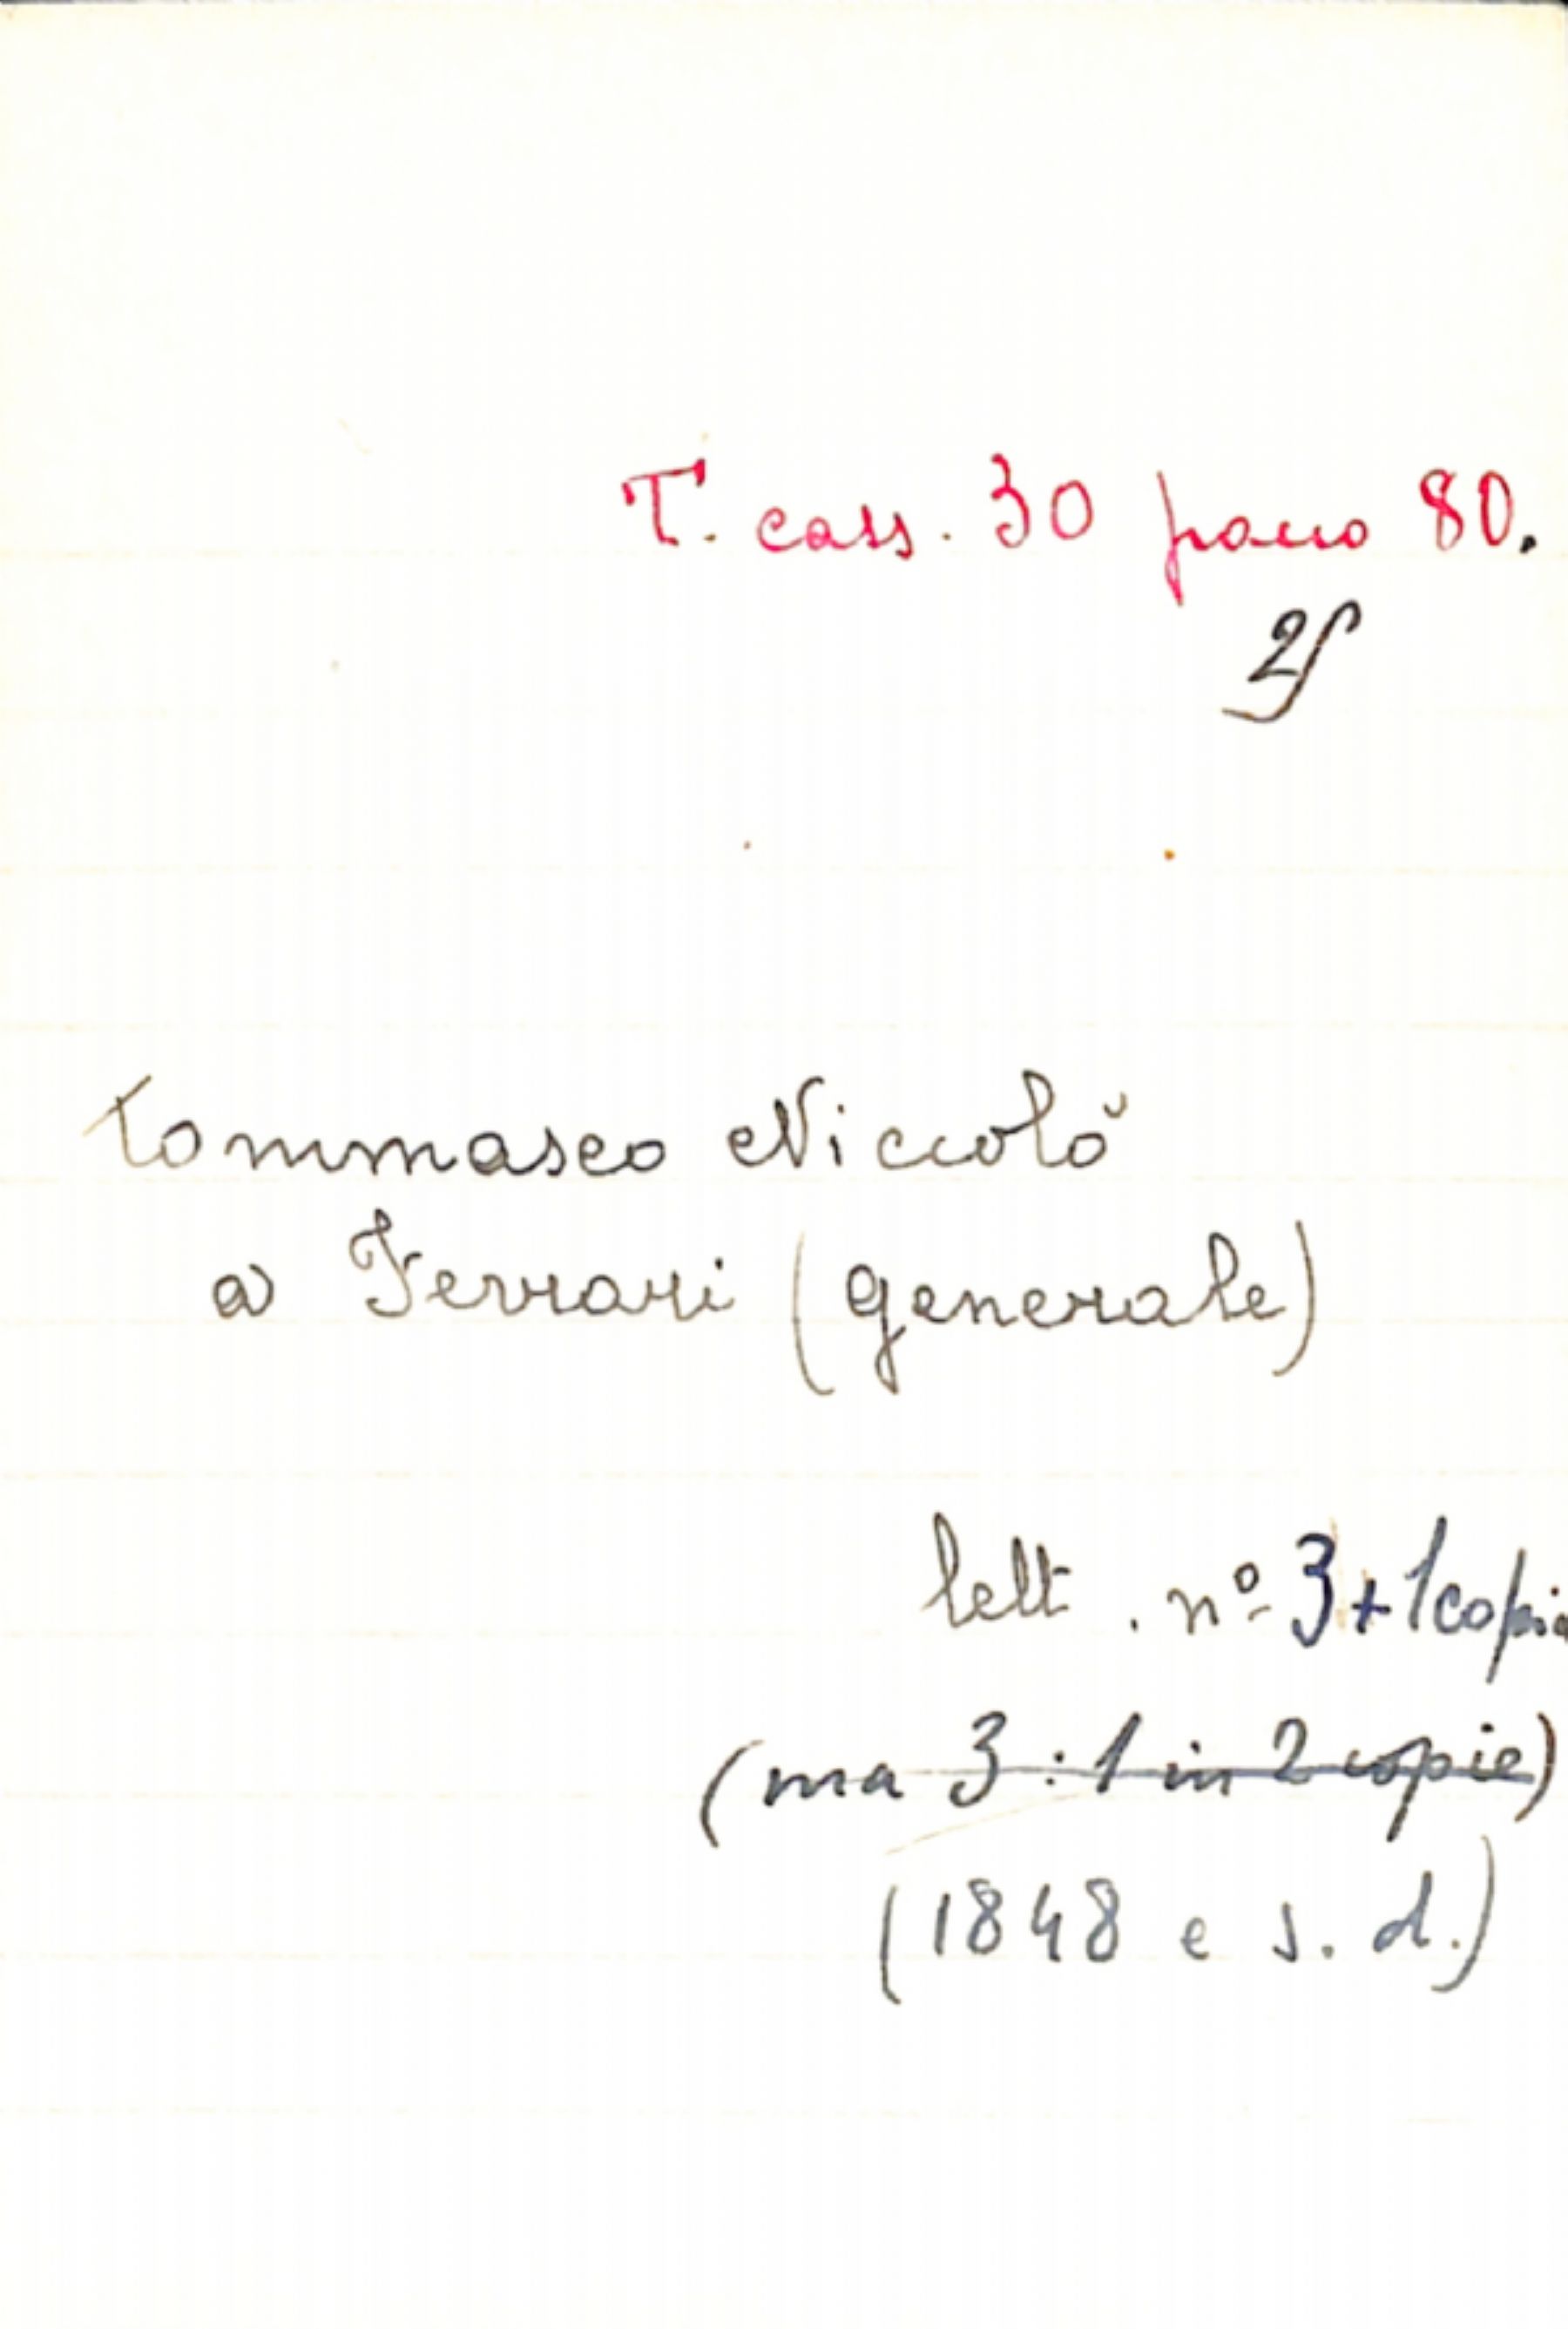 T. cass. 30 panno 80.
2
Tommaseo Niccolò
a Ferrari (generale)
lett. nº 3 + 1 copia
(ma 3 : 1 in 2 copie)
(1848 e s. d.)